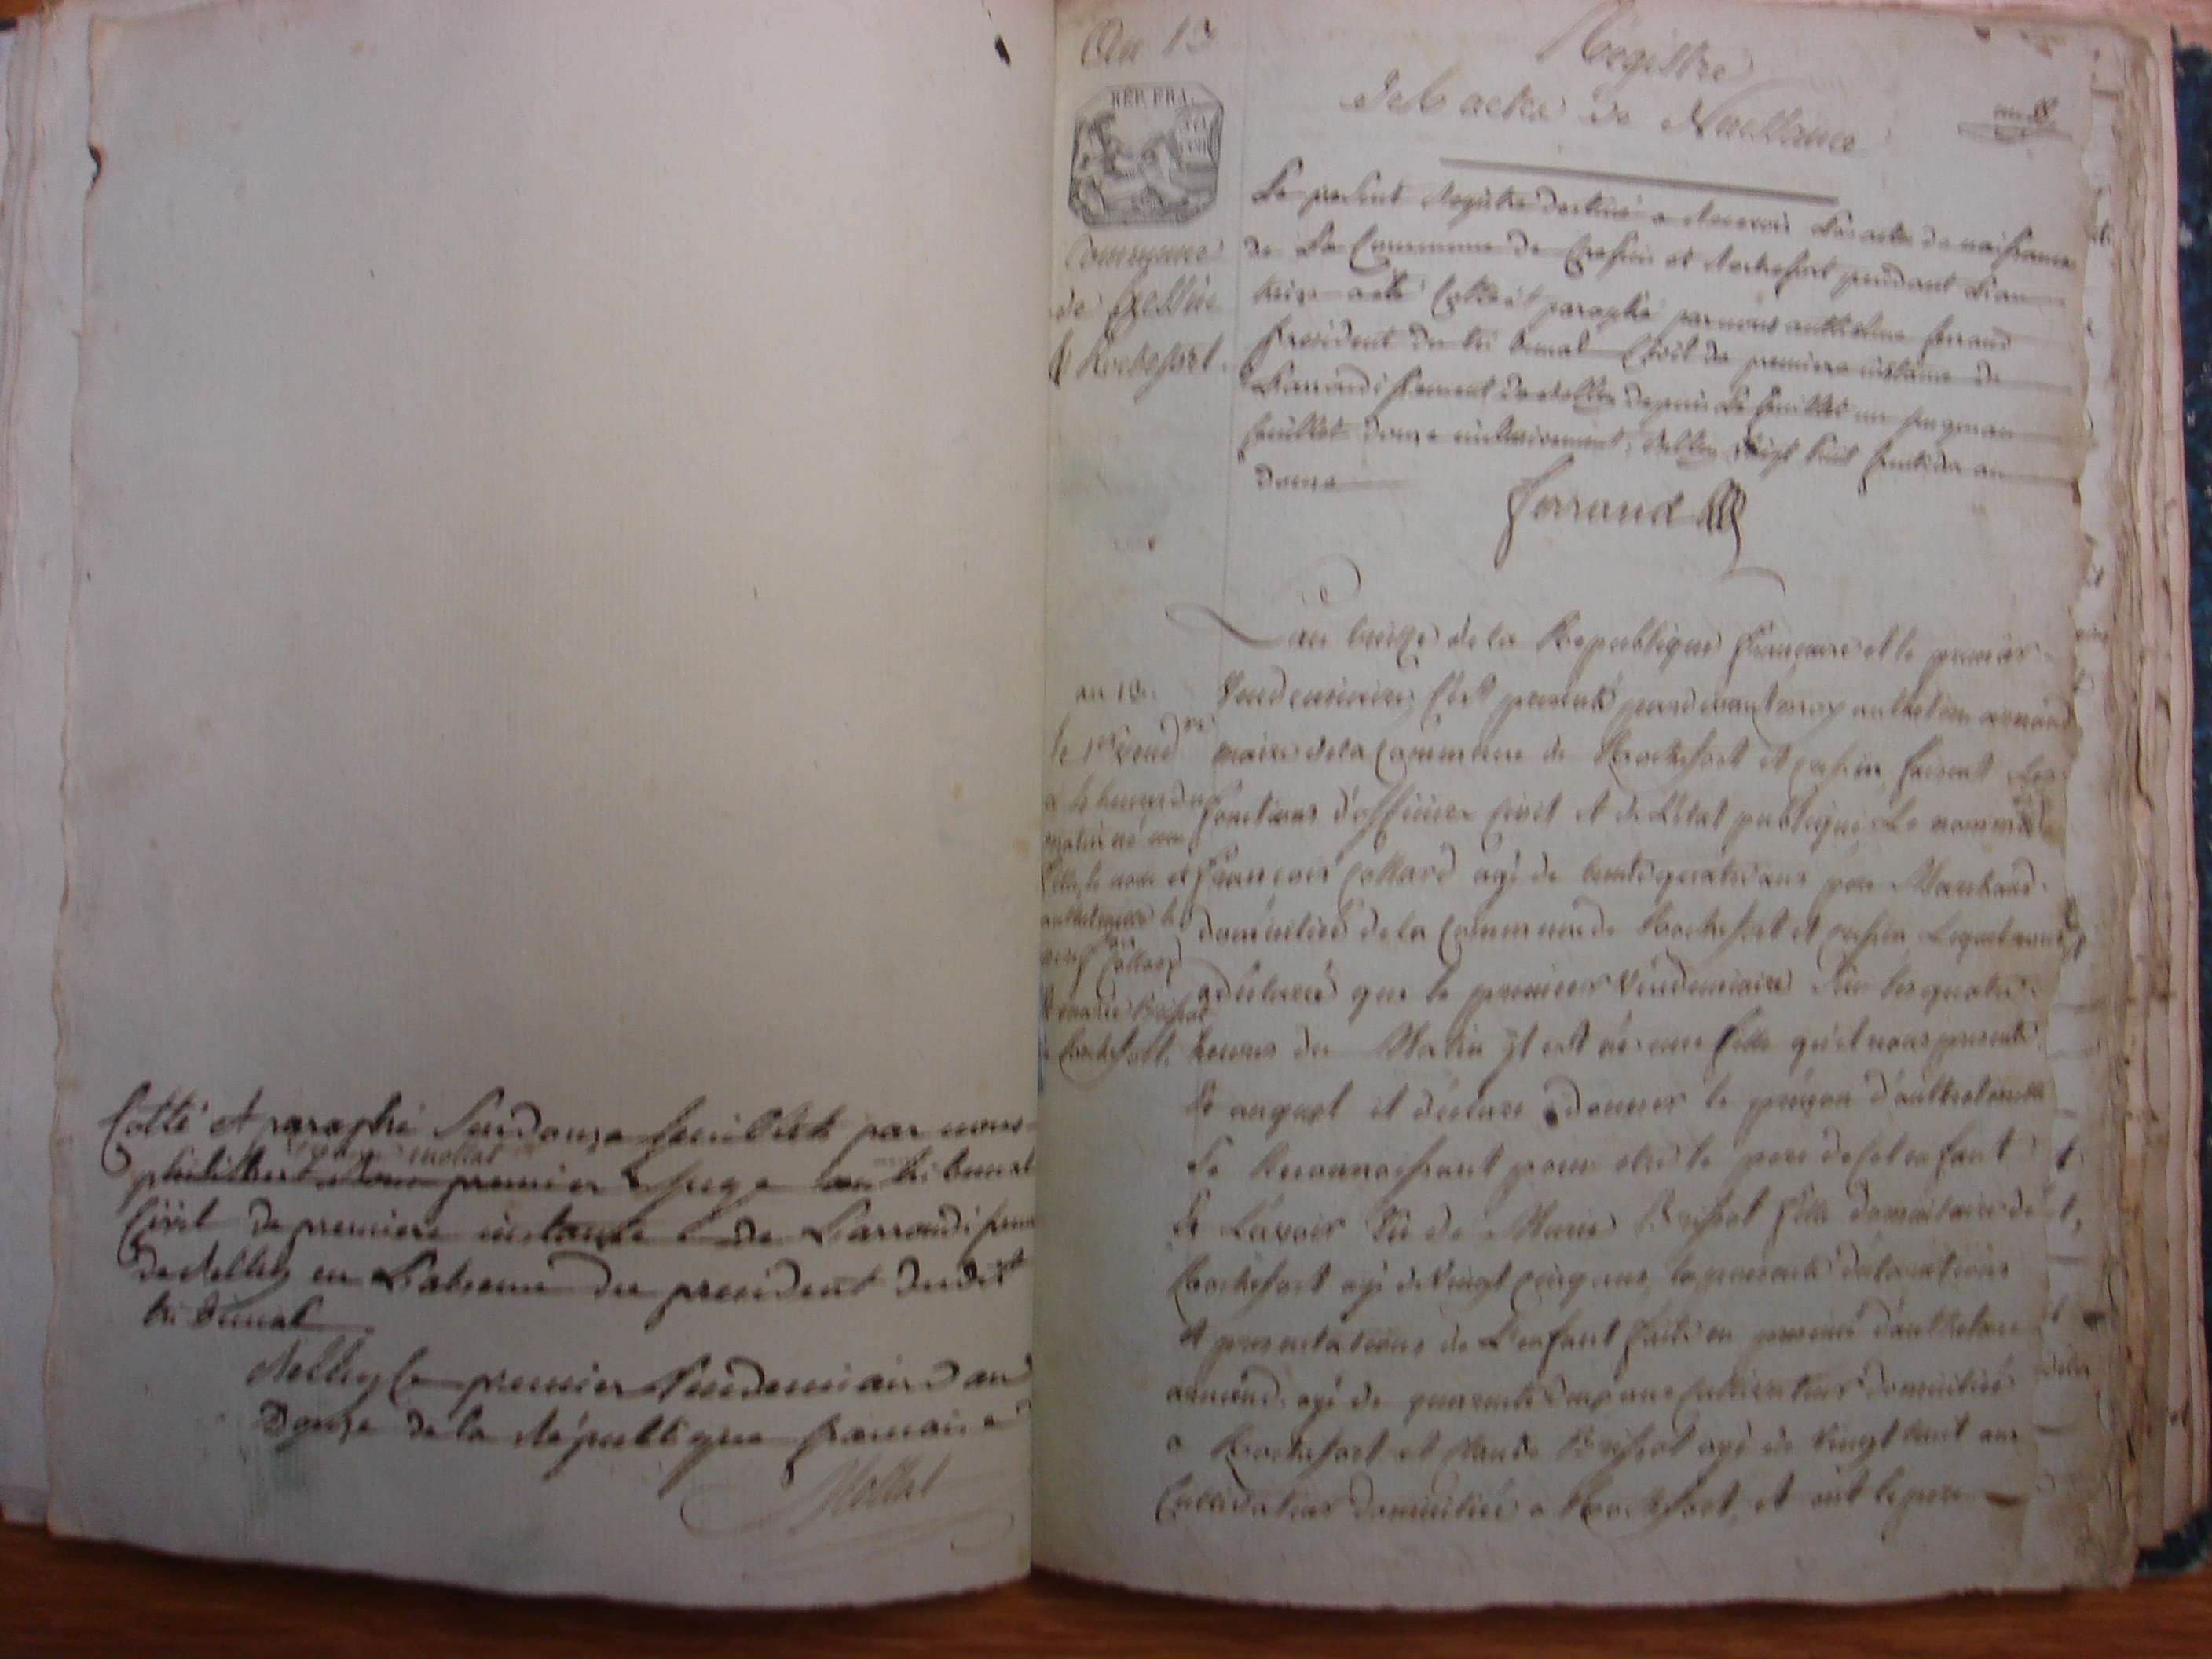 Cotté et paraphé Sur douze feuillets par nous
mollat
philibert premier Juge au tribunal
Civil de premiere instance de L'arrondissem
de Belley en L'absence du president dudit
tribunal
Belley le premier Vendemiaire an
Douze de la République francaise
Mollat
An 13
REP. FRA.
Commune
de Cressin
& Rochefort.
Registre
des actes de Naissance
Le present Registre destiné a Recevoir Les actes de naissance
de La Commune de Cressin et Rochefort pendant L'an
treize a été Cotté et paraphé par nous anthelme ferrand
president du tribunal Civil de premiere instance de
L'arrondissement de Belley depuis Le feuillet un jusqu'au
feuillet douze inclusivement, Belley vingt huit fructidor an
douze
ferrand
L'an treize de la Republique française et le premier
Vendemiaire, s'est presenté pardevant moy anthelme
maire de la Commune de Rochefort et cressin faisant Les
fonctions d'officier Civil et de L'état publique Le nommé
François Collard agé de trente quatre ans Marchand
domicilié de la Commune de Rochefort et cressin Lequel nous
a déclaré que le premier Vendemiaire Sur les quatre
heures du Matin il est né une fille qu'il nous presente
et auquel il déclare donner le prénom d'anthelmette
Se Reconnaissant pour etre le pere de cet enfant
Et L'avoir Eu de Marie Brissot fille domiciliaire de
Rochefort agé de vingt cinq ans, la presente déclarations
et presentations de L'enfant faite en presence d'anthelme
agé de quarante deux ans Cultivateur domicilié
a Rochefort et Claude Brissot agé de vingt huit ans
Cultivateur domicilié a Rochefort, et ont le pere
an 13.
le 1er vend re
a 4 heures du
matin né une
fille, le nom et
anthelmette
fois Collard
& marie Brissot
a Rochefort.